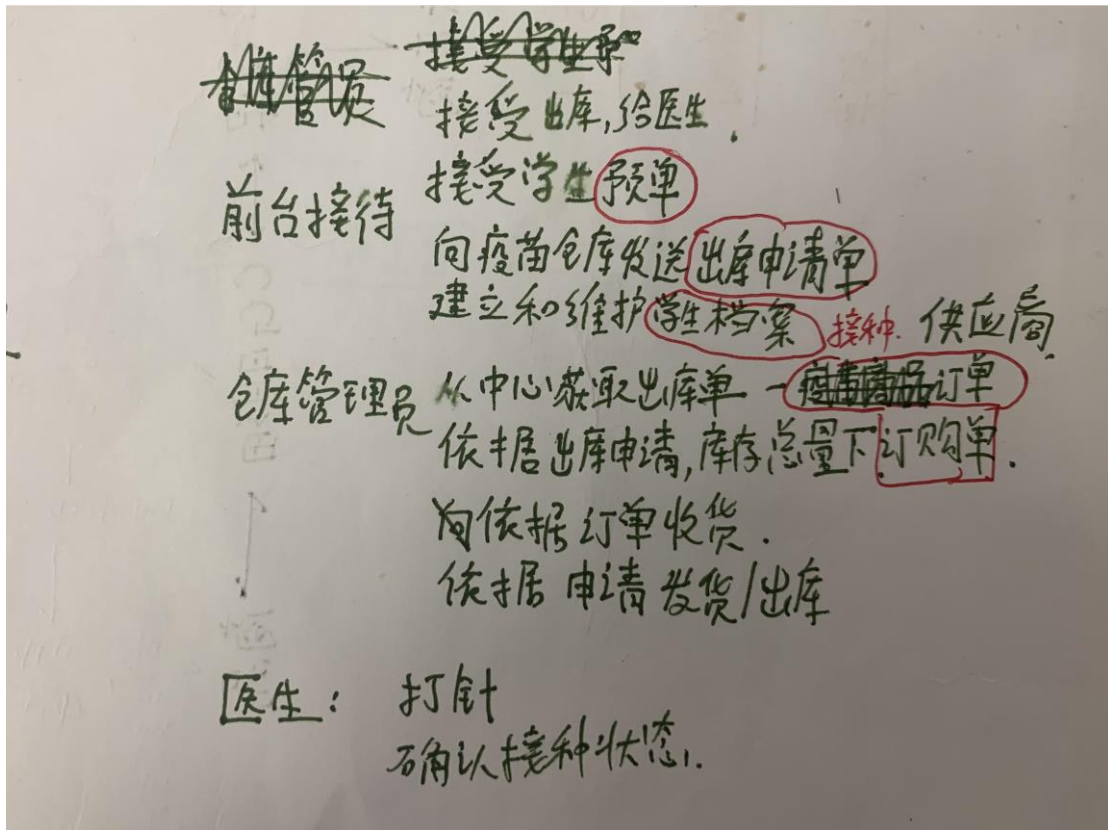 接受出库,给医生.
前台接待 接受学生预单
向疫苗仓库发送出库申请单
建立和维护学生档案 接种. 供应商.
仓库管理员 从中心获取出库单 — 订单
依据出库申请,库存总量下订购单.
依据订单收货.
依据申请发货/出库
医生: 打针
确认接种状态.